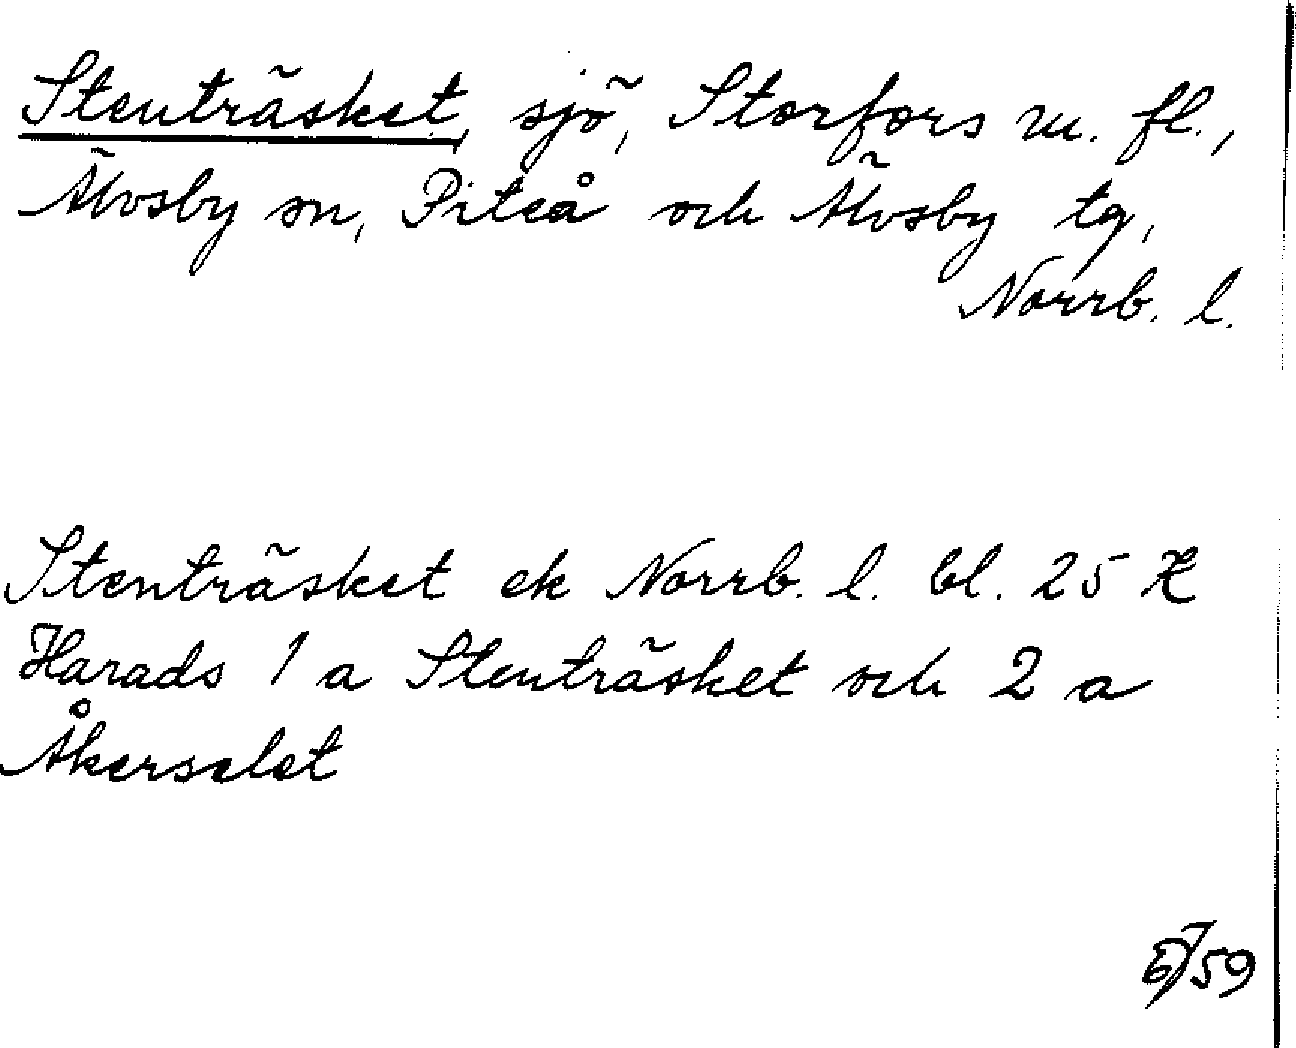 Stenträsket, sjö, Storfors m. fl.,
Älvsby sn, Piteå och Älvsby tg,
Norrb. l.
Stenträsket ek Norrb. l. bl. 25 K
Harads 1 a Stenträsket och 2 a
Åkerselet